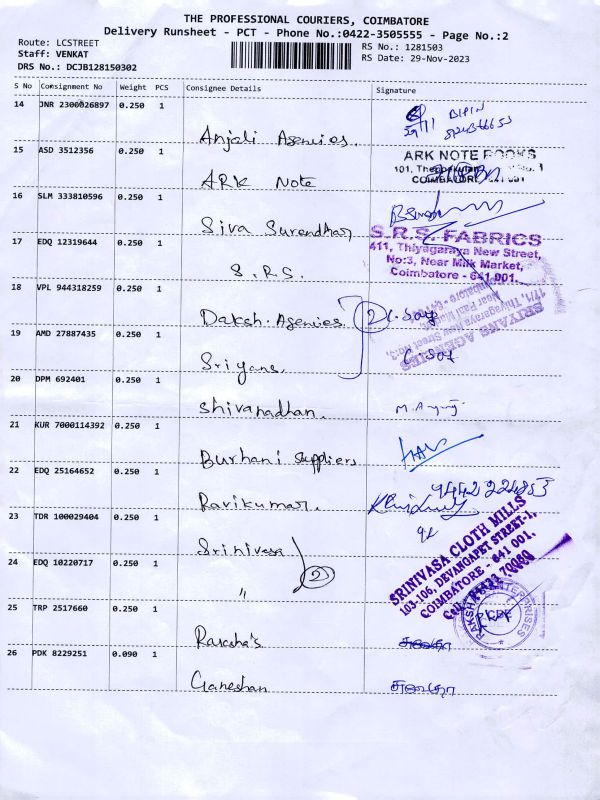 THE PROFESSIONAL COURIERS, COIMBATORE
Delivery Runsheet - PCT - Phone No.:0422-3505555 - Page No.:2
Route: LCSTREET
Staff: VENKAT
DRS No.: DCJB128150302
RS No.: 1281503
RS Date: 29-Nov-2023
S No Consignment No Weight PCS Consignee Details Signature
14 JNR 2300026897 0.250 1
BIPIN
29/11
Anjali Agencies.
15 ASD 3512356 0.250 1
ARK NOTE BOOKS
COIMBATORE
ARK Note
16 SLM 333810596 0.250 1
Siva Surendhar
17 EDQ 12319644 0.250 1
S.R.S. FABRICS
411, Thiyagaraya New Street,
No:3, Near Milk Market,
Coimbatore - 641 001.
S.R.S.
18 VPL 944318259 0.250 1
SRIYANS AGENCIES
Daksh Agenies 2
19 AMD 27887435 0.250 1
Sriyans.
20 DPM 692401 0.250 1
Shivanadhan.
21 KUR 7000114392 0.250 1
Burhani Suppliers
22 EDQ 25164652 0.250 1
9442224853
Ravikumar.
23 TDR 100029404 0.250 1
SRINIVASA CLOTH MILLS
103-106, DEVANGAPET STREET-1,
COIMBATORE - 641 001.
Srinivasa
24 EDQ 10220717 0.250 1
" 2
25 TRP 2517660 0.250 1
Raksha's
26 PDK 8229251 0.090 1
Ganeshan